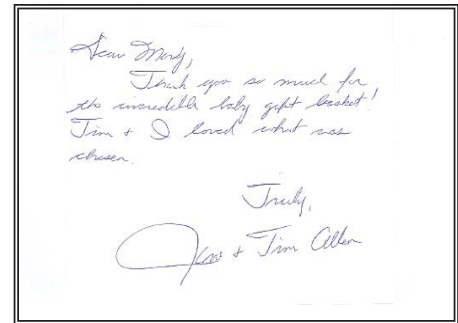 Dear Mindy,
Thank you so much for
the incredible baby gift basket!
Tim + I loved what was
chosen.
Truly,
Jane + Tim Allen